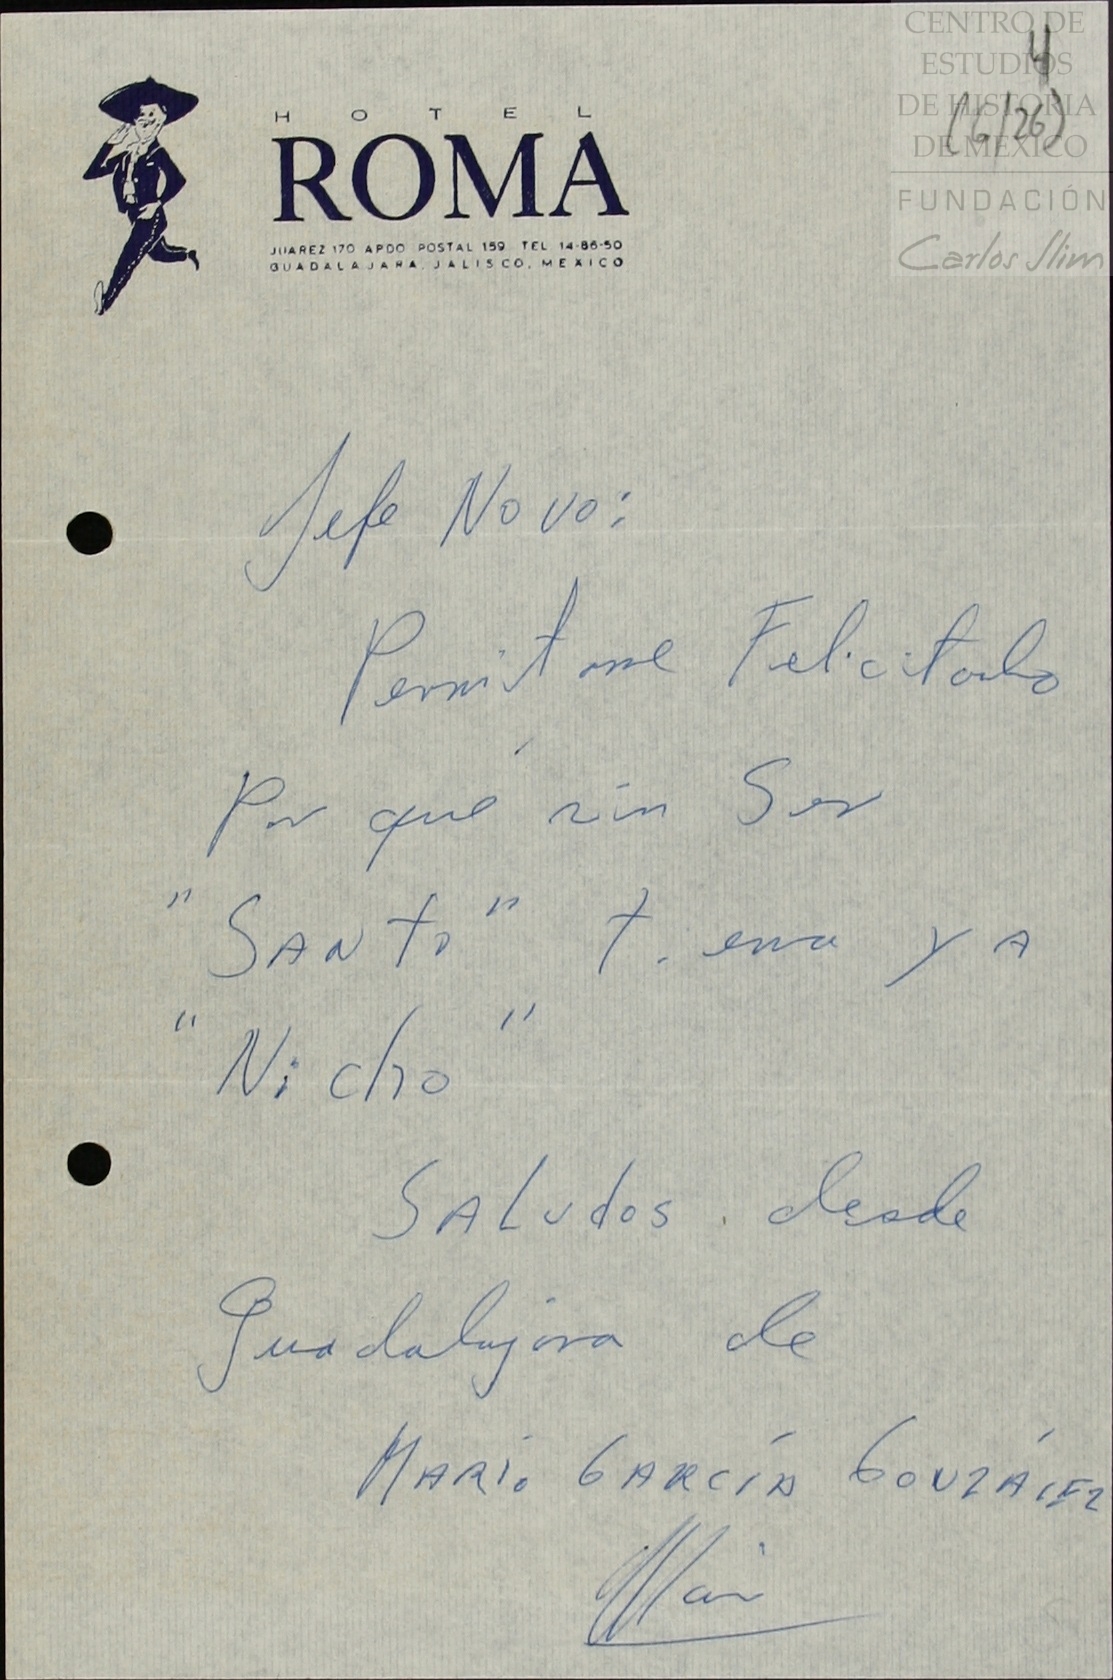 CENTRO DE
ESTUDIOS
DE HISTORIA
DE MÉXICO
FUNDACIÓN
Carlos Slim
4
(6/26)
HOTEL
ROMA
JUAREZ 170 APDO. POSTAL 159 TEL. 14-86-50
GUADALAJARA, JALISCO, MEXICO
Jefe Novo:
Permitame Felicitarlo
Por qué sin Ser
"SANto" tiene ya
"Nicho"
SALudos desde
Guadalajara de
MARIO GARCÍA GONZÁLEZ
Mario